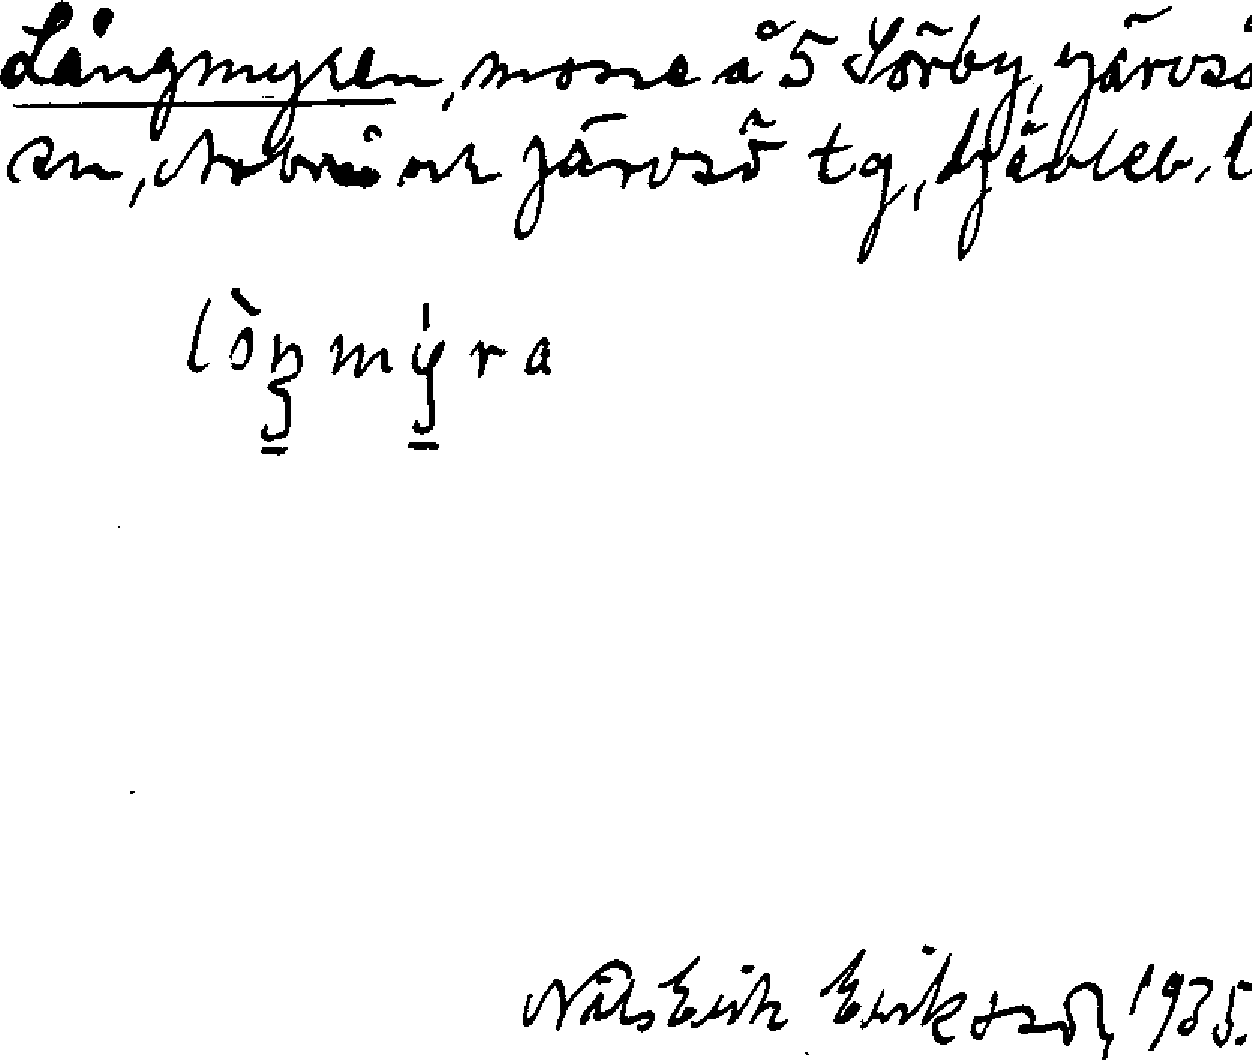 Långmyren, mosse å 5 Sörby, Järvsö
sn, Arbrå och Järvsö tg, Gävleb. l
lòŋmyra
Nils Erik Eriksson, 1935.